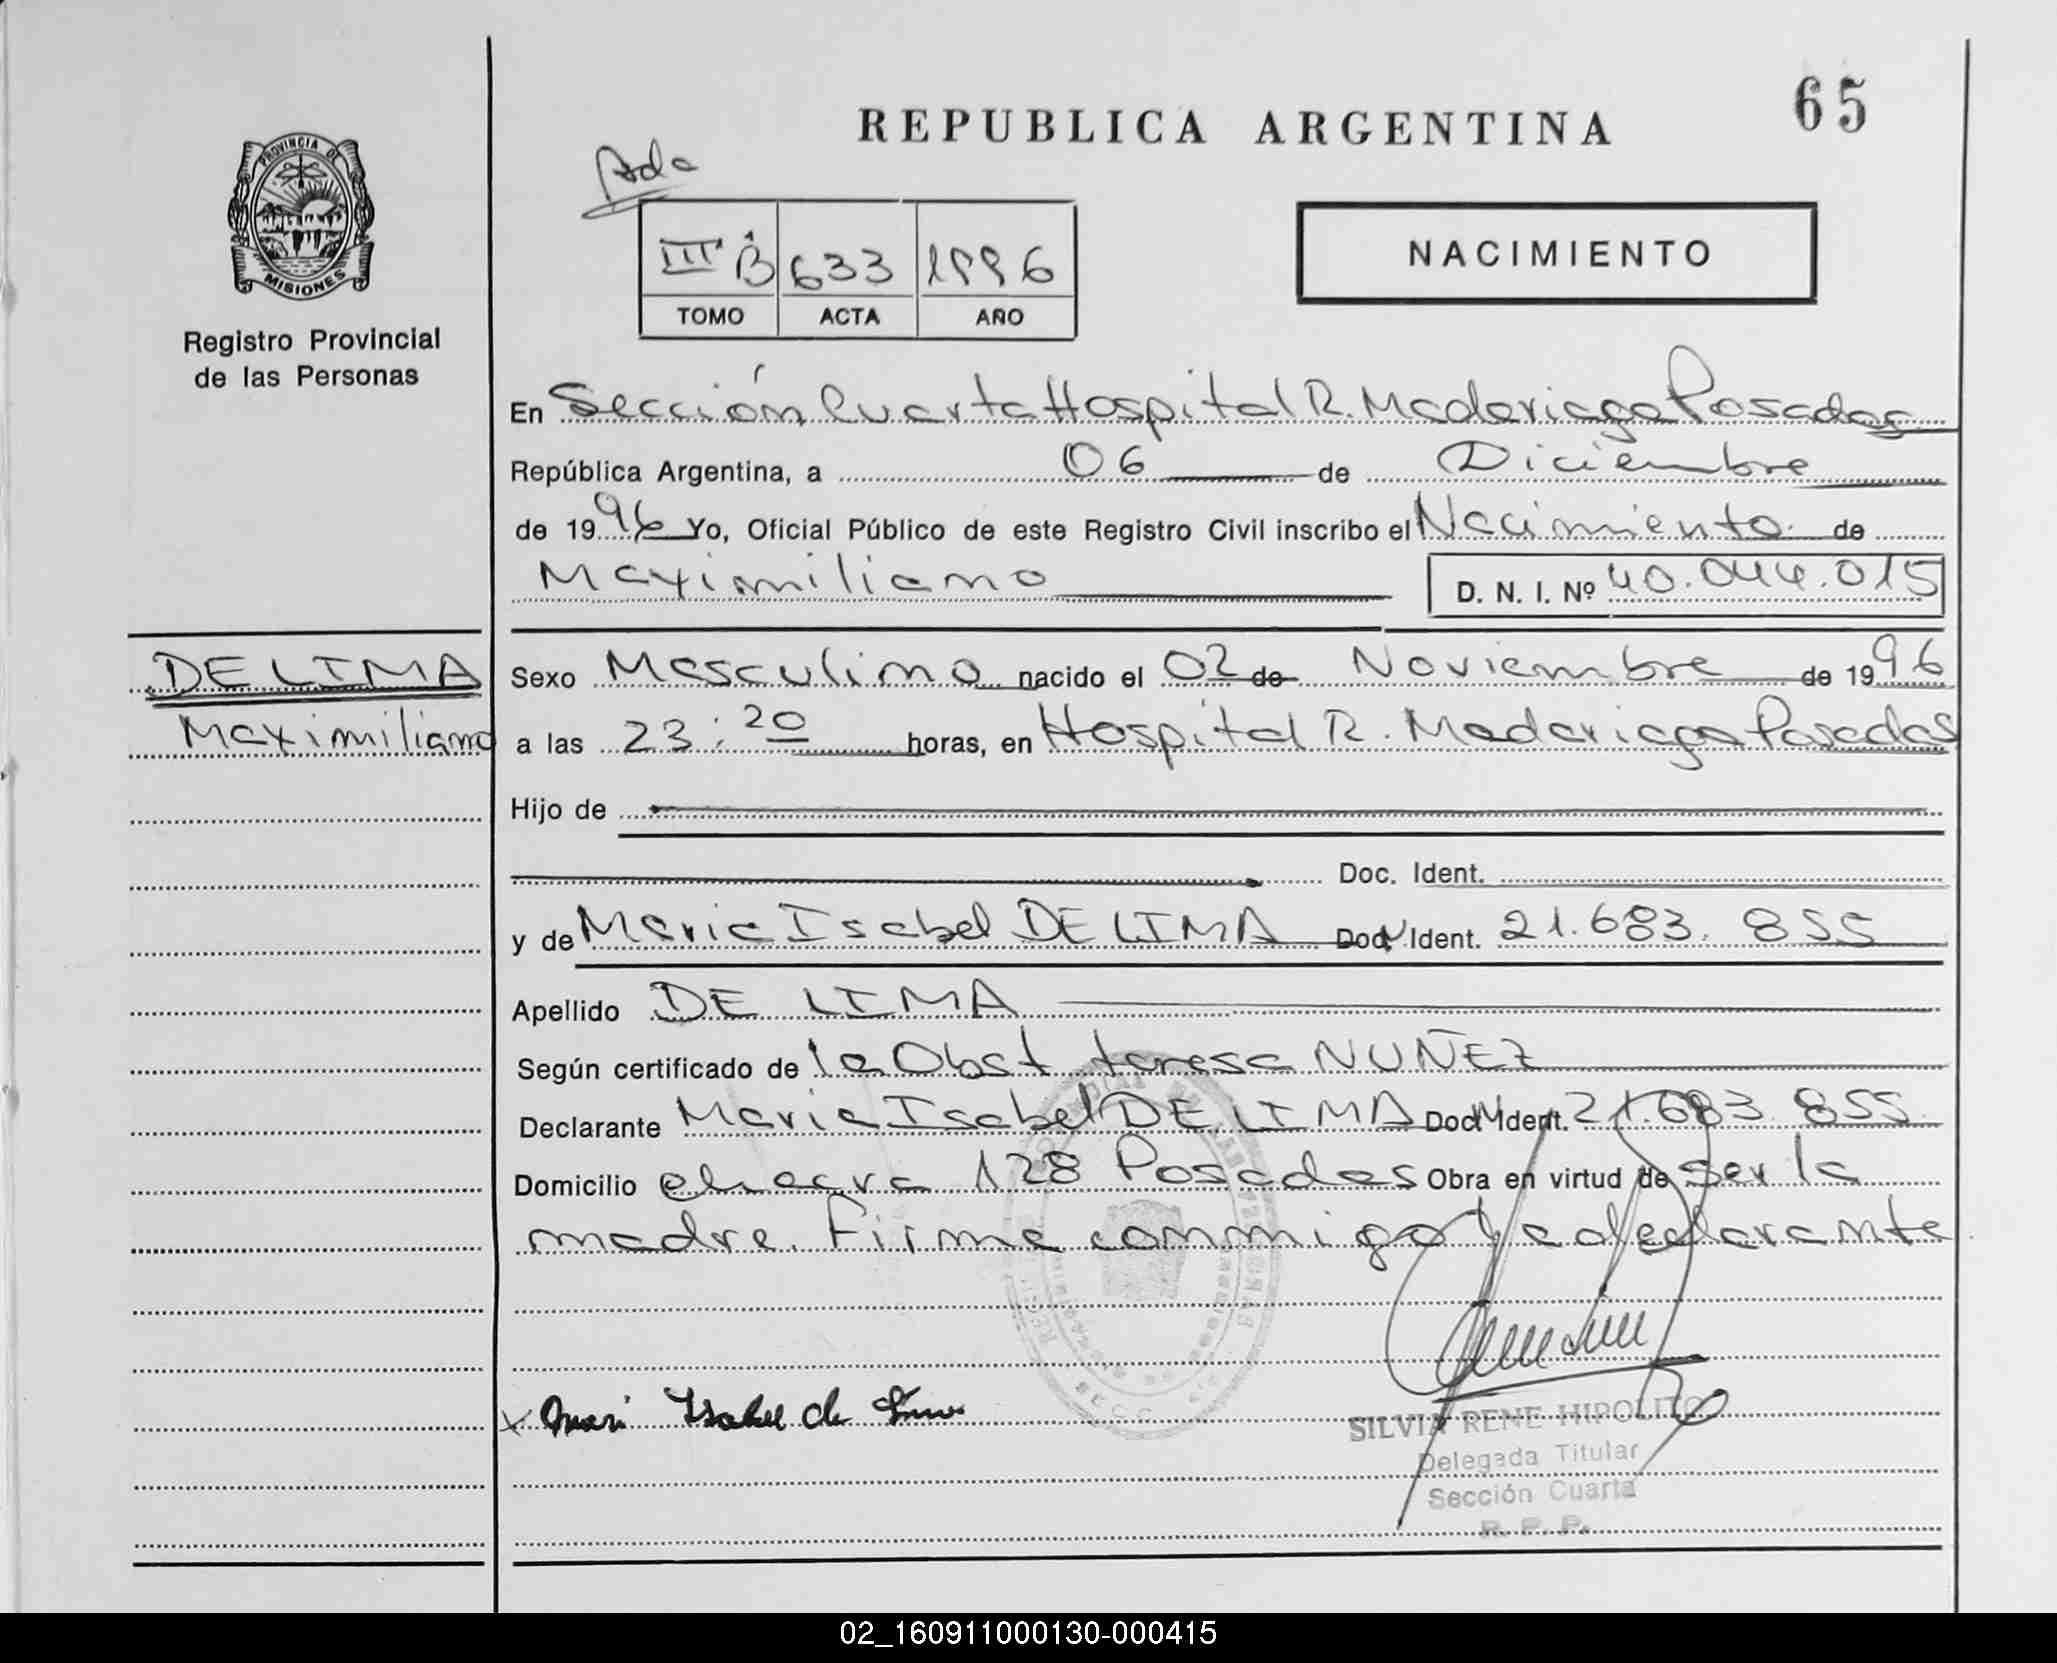 65
REPUBLICA ARGENTINA
PROVINCIA DE
MISIONES
Registro Provincial
de las Personas
NACIMIENTO
III B 633 1996
TOMO ACTA AÑO
En Sección Cuarta Hospital R. Madariaga Posadas
República Argentina, a 06 de Diciembre
de 1996 Yo, Oficial Público de este Registro Civil inscribo el Nacimiento de
Maximiliano
D. N. I. Nº 40.044.015
DE LIMA
Maximiliano
Sexo Masculino nacido el 02 de Noviembre de 1996
a las 23:20 horas, en Hospital R. Madariaga Posadas
Hijo de
Doc. Ident.
y de Maria Isabel DE LIMA Doc. Ident. 21.683.855
Apellido DE LIMA
Según certificado de la Obst teresa NUÑEZ
Declarante Maria Isabel DE LIMA Doc. Ident. 21.683.855
Domicilio chacra 128 Posadas Obra en virtud de ser la
madre. Firma conmigo la declarante
Isabel de Lima
SILVIA RENE HIPOLITO
Delegada Titular
Sección Cuarta
R. P. P.
02_160911000130-000415